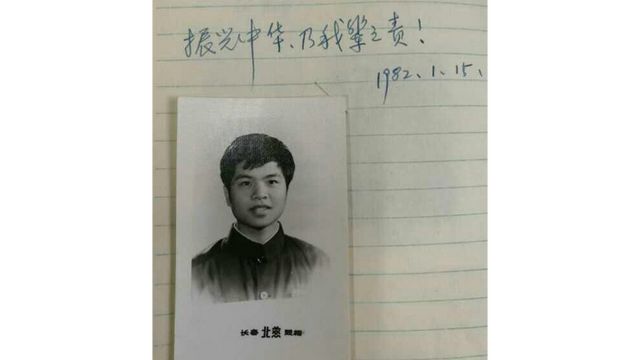 振兴中华、乃我辈之责！
1982.1.15.
长春 北慈 照相